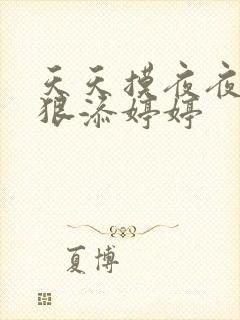 天天摸夜夜
狠添婷婷
夏博